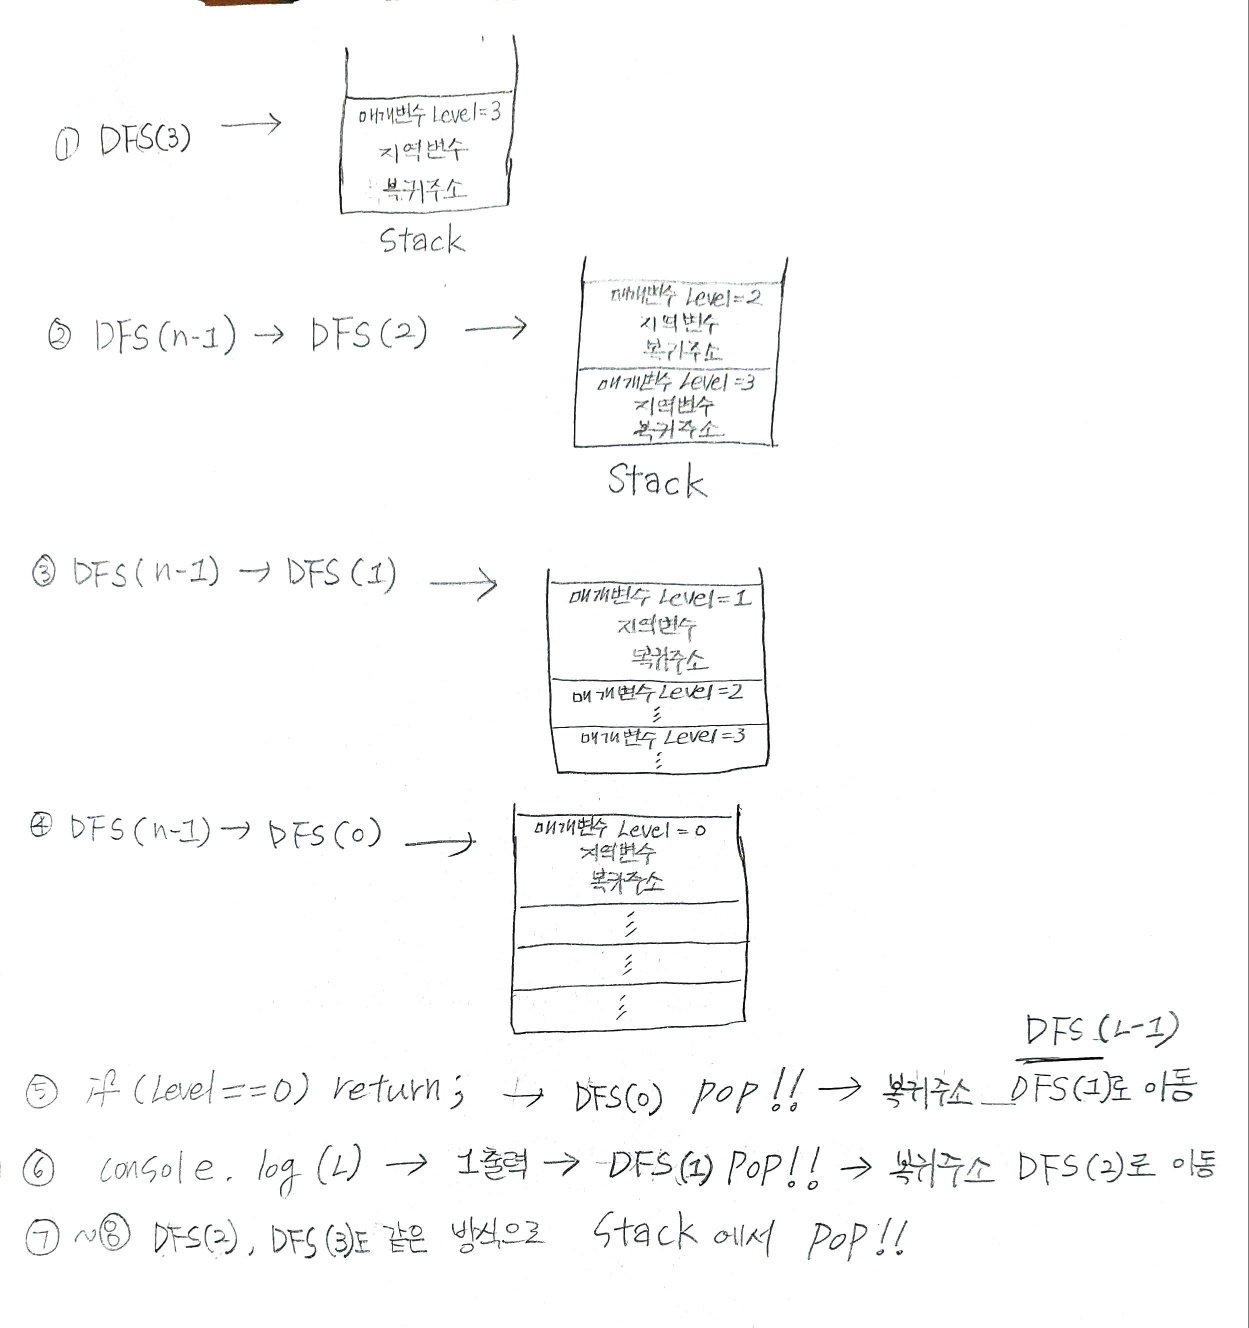 ① DFS(3) →
매개변수 Level=3
지역변수
복귀주소
Stack
② DFS(n-1) → DFS(2) →
매개변수 Level=2
지역변수
복귀주소
매개변수 Level=3
지역변수
복귀주소
Stack
③ DFS(n-1) → DFS(1) →
매개변수 Level=1
지역변수
복귀주소
매개변수 Level=2
⋮
매개변수 Level=3
⋮
④ DFS(n-1) → DFS(0) →
매개변수 Level=0
지역변수
복귀주소
⋮
⋮
⋮
DFS(L-1)
⑤ if (Level==0) return; → DFS(0) POP!! → 복귀주소 DFS(1)로 이동
⑥ console.log(L) → 1출력 → DFS(1) POP!! → 복귀주소 DFS(2)로 이동
⑦ ~⑧ DFS(2), DFS(3)도 같은 방식으로 Stack에서 POP!!